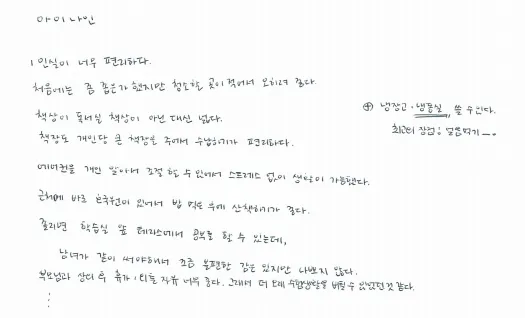 아이나인
1인실이 너무 편리하다.
처음에는 좀 좁은가 했지만 청소할 곳이 적어서 오히려 좋다.
책상이 독서실 책상이 아닌 대신 넓다.
책장도 개인당 큰 책장을 주어서 수납하기가 편리하다.
⊕ 냉장고, 냉동실, 쓸 수 있다.
최고의 장점: 얼음먹기
에어컨을 개인 맡아서 조절 할 수 있어서 스트레스 없이 생활이 가능했다.
근처에 바로 공원이 있어서 밥 먹은 후에 산책하기가 좋다.
졸리면 학습실 앞 테라스에서 공부를 할 수 있는데,
남녀가 같이 써야해서 조금 불편한 감은 있지만 나쁘지 않다.
부모님과 상의 후 휴가, 외출 자유 너무 좋다. 그래서 더 오래 수험생활을 버틸 수 있었던 것 같다.